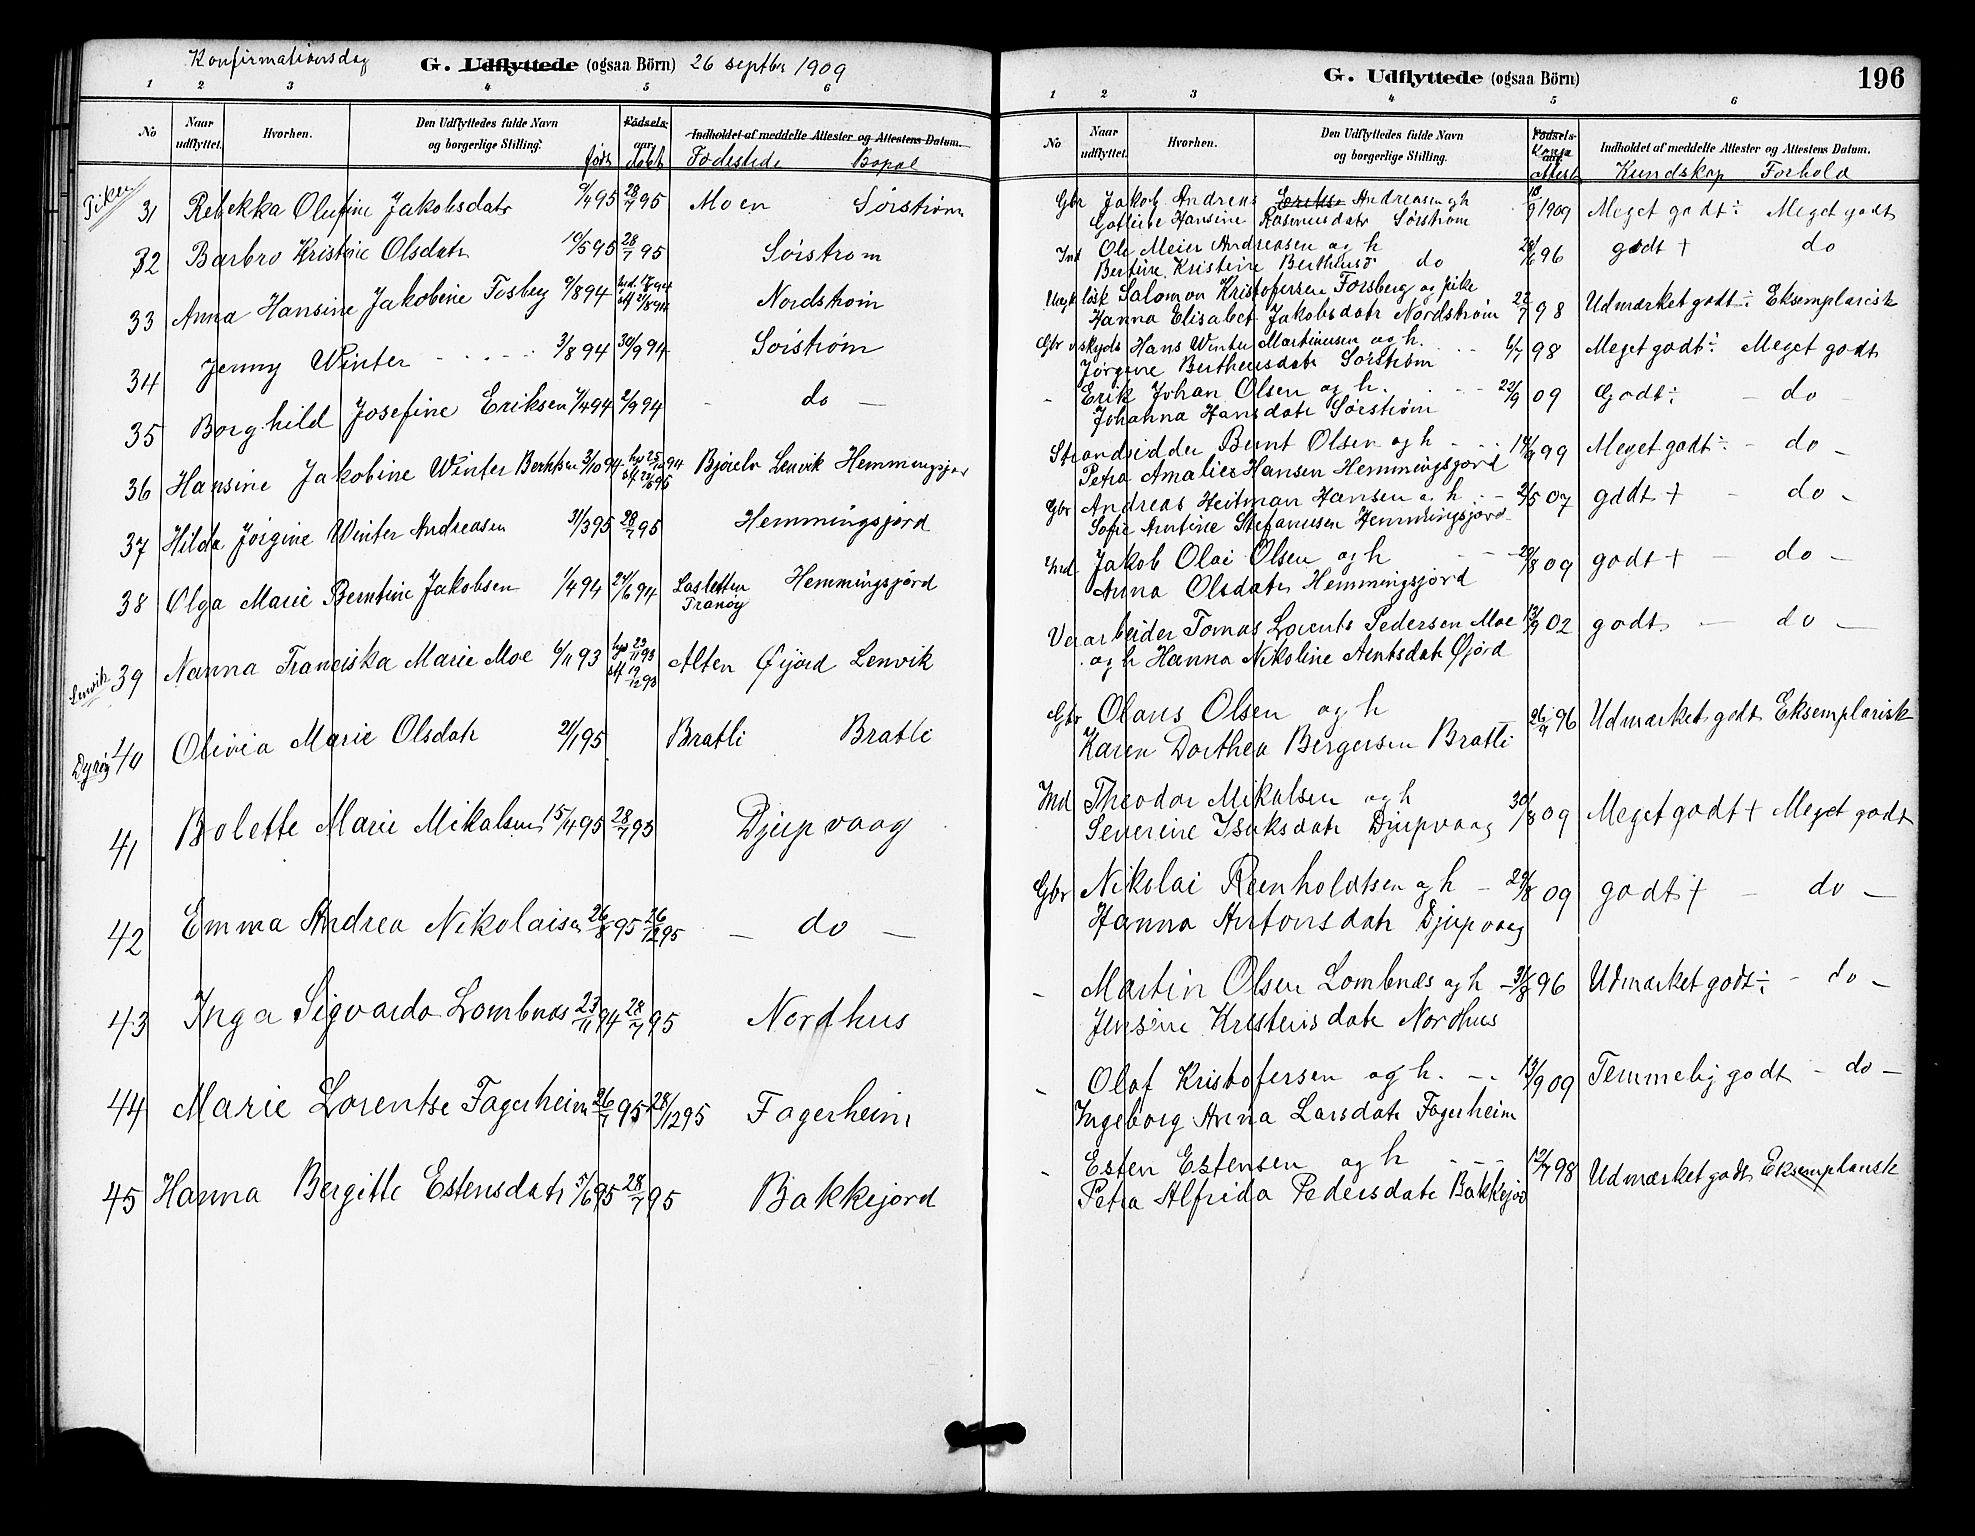 Konfirmationsdag G. Udflyttede (ogsaa Börn) 26 septbr 1909
1 2 3 4 5 6
No Naar udflyttet. Hvorhen. Den Udflyttedes fulde Navn og borgerlige Stilling. Fødsels- aar Indholdet af meddelte Attester og Attestens Datum.
født døbt Fødested Bopæl
Piker
31 Rebekka Olufine Jakobsdatr 95 28/7 95 Moen Sørstrøm
32 Barbro Kristine Olsdatr 19/5 95 28/7 95 Sörstrøm
33 Anna Hansine Jakobine Fosberg 9/8 94 Nordstrøm
34 Jenny Winter - - - - - 3/8 94 30/9 94 Sörstrøm
35 Borghild Josefine Eriksen 7/4 94 2/9 94 - do -
36 Hansine Jakobine Winter Berntsen 3/10 94 Lenvik Hemmingsjord
37 Hilda Jörgine Winter Andreasen 31/3 95 28/7 95 Hemmingsjord
38 Olga Marie Berntine Jakobsen 1/4 94 24/6 94 Lasletten Tranøy Hemmingsjörd
Lenvik 39 Nanna Franciska Marie Moe 6/11 93 hjd 23/11 93 stf 93 Alten Øijord Lenvik
Dyröy 40 Olivia Marie Olsdatr 21/1 95 Bratli Bratli
41 Bolette Marie Mikalsen 15/4 95 28/7 95 Djupvaag
42 Emma Andrea Nikolaisen 26/8 95 26/12 95 - do -
43 Inga Sigvarda Lombnæs 23/11 94 28/7 95 Nordhus
44 Marie Lorentse Fagerheim 26/7 95 28/12 95 Fagerheim
45 Hanna Bergitte Estensdatr 5/6 95 28/7 95 Bakkejord
G. Udflyttede (ogsaa Börn) 196
1 2 3 4 5 6
No Naar udflyttet. Hvorhen. Den Udflyttedes fulde Navn og borgerlige Stilling. Fødsels- Indholdet af meddelte Attester og Attestens Datum.
Attest Kundskap Forhold
Gbr Jakob Andreas Eriks Andreasen og h 9 1909 Meget godt ÷ Meget godt
Gotleibe Hansine Rasmusdatr Sørstrøm
Ind Ole Meier Andreasen og h 96 godt + do
Bertine Kristine Bertheus do
Ungk. løsk Salomon Kristofersen Forsberg og pike 22/7 98 Udmærket godt ÷ Eksemplarisk
Hanna Elisabet Jakobsdatr Nordstrøm
Gbr Hans Winter Martinusen og h. 6/7 98 Meget godt ÷ Meget godt
Jørgine Bertheusdatr Sørstrøm
- Erik Johan Olsen og h. - - 22/9 09 Godt ÷ - do -
Johanna Hansdatr Sørstrøm
Strandsidder Bernt Olsen og h - 99 Meget godt ÷ - do -
Petra Amalie Hansen Hemmingsjord
Gbr Andreas Heitman Hansen og h - - 07 godt + - do -
Sofie Arntine Stefanusen Hemmingsjord
Ind Jakob Olai Olsen og h - - 09 godt + - do -
Anna Olsdatr Hemmingsjord
Vei arbeider Tomas Lorents Pedersen Moe 13/9 02 godt - do -
og h Hanna Nikoline Arntsdatr Øjord
Gbr Olaus Olsen og h 26/9 96 Udmærket godt Eksemplarisk
Karen Dorthea Bergersen Bratli
Ind Theodor Mikalsen og h 30/8 09 Meget godt + Meget godt
Severine Isaksdatr Djupvaag
Gbr Nikolai Reinholdtsen og h - 29/8 09 godt + - do -
Hanna Antonsdatr Djupvaag
- Martin Olsen Lombnæs og h - 31/8 96 Udmærket godt ÷ - do -
Jensine Kristensdatr Nordhus
- Olaf Kristofersen og h. - - 13/9 09 Temmelig godt - do -
Ingeborg Anna Larsdatr Fagerheim
- Esten Estensen og h - - - 12/7 98 Udmærket godt Eksemplarisk
Petra Alfrida Pedersdatr Bakkejord